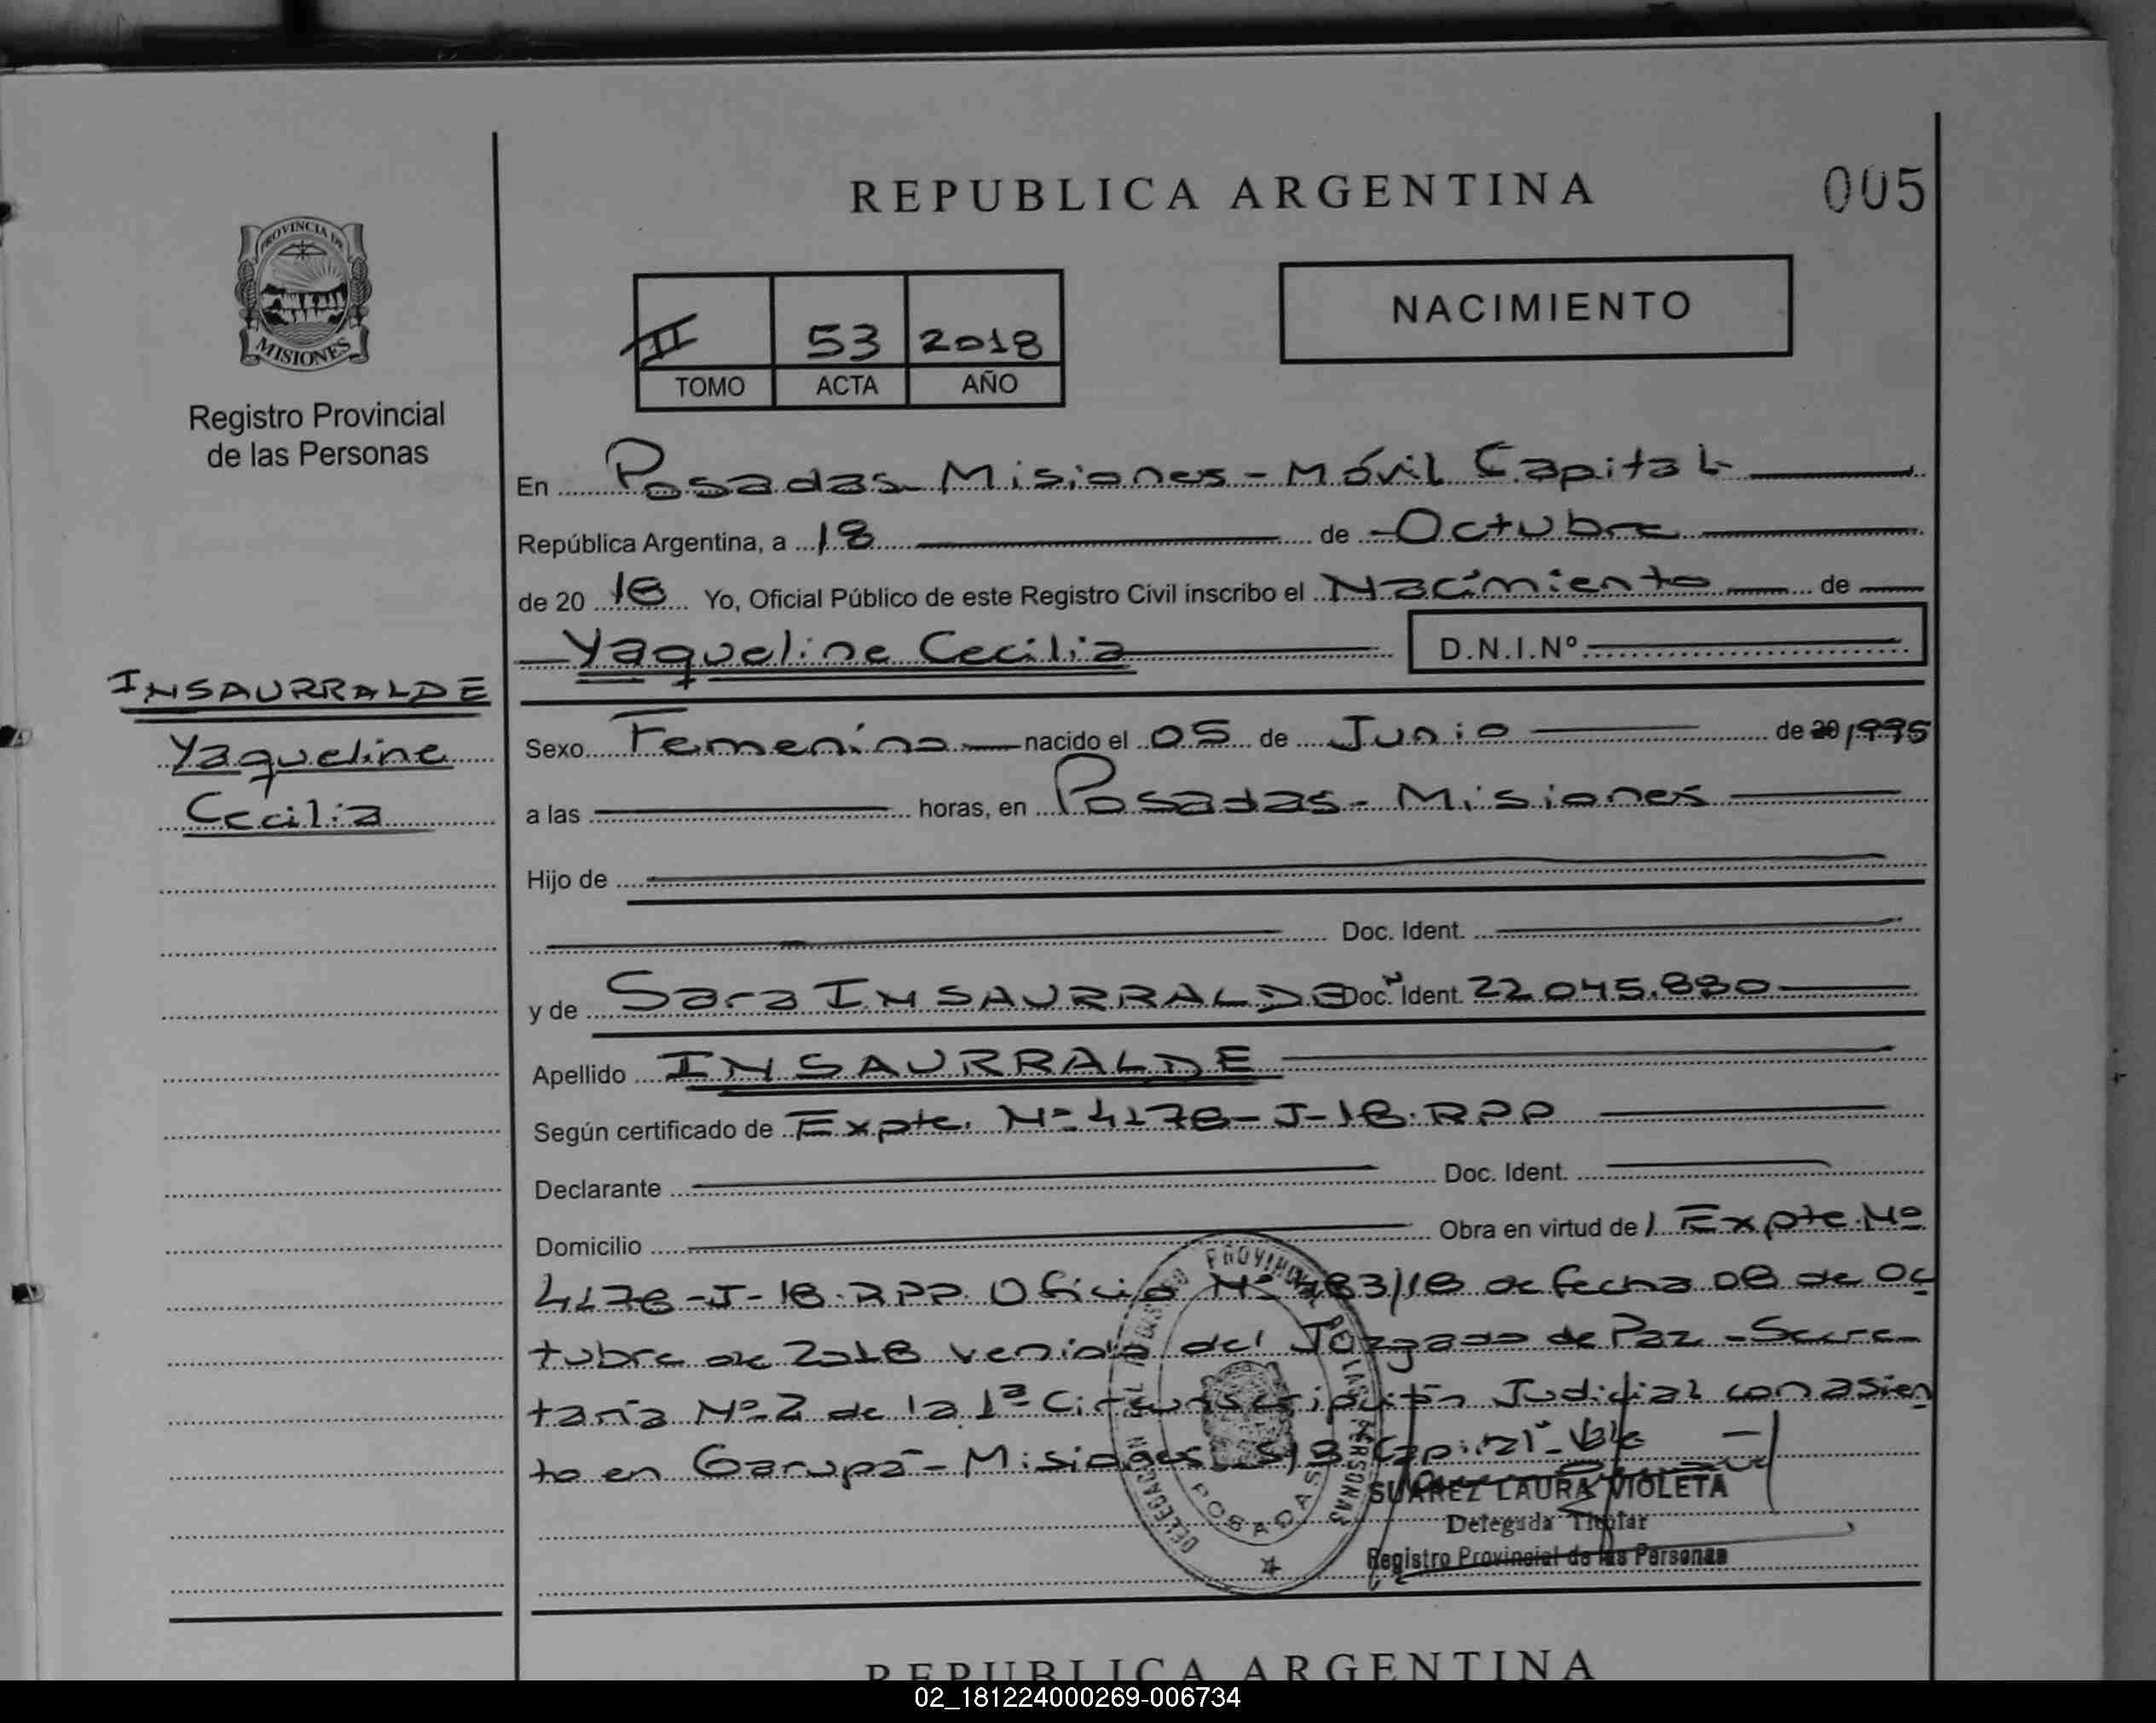 REPUBLICA ARGENTINA
005
PROVINCIA DE
MISIONES
Registro Provincial
de las Personas
II 53 2018
TOMO ACTA AÑO
NACIMIENTO
En Posadas - Misiones - Móvil Capital
República Argentina, a 18 de Octubre
de 20 18 Yo, Oficial Público de este Registro Civil inscribo el Nacimiento de
Yaqueline Cecilia D.N.I.Nº
INSAURRALDE
Yaqueline
Cecilia
Sexo Femenino nacido el 05 de Junio de 20 1995
a las horas, en Posadas - Misiones
Hijo de
Doc. Ident.
y de Sara INSAURRALDE Doc. Ident. 22.045.880
Apellido INSAURRALDE
Según certificado de Expte. Nº 4178-J-18.RPP
Declarante Doc. Ident.
Domicilio Obra en virtud de Expte. Nº
4178-J-18.RPP. Oficio Nº 483/18 de fecha 08 de Oc
tubre de 2018 venido del Juzgado de Paz - Secre-
taría Nº 2 de la 1ª Circunscripción Judicial con asien
to en Garupá - Misiones Vale
SUAREZ LAURA VIOLETA
Delegada Titular
Registro Provincial de las Personas
POSADAS
REPUBLICA ARGENTINA
02_181224000269-006734